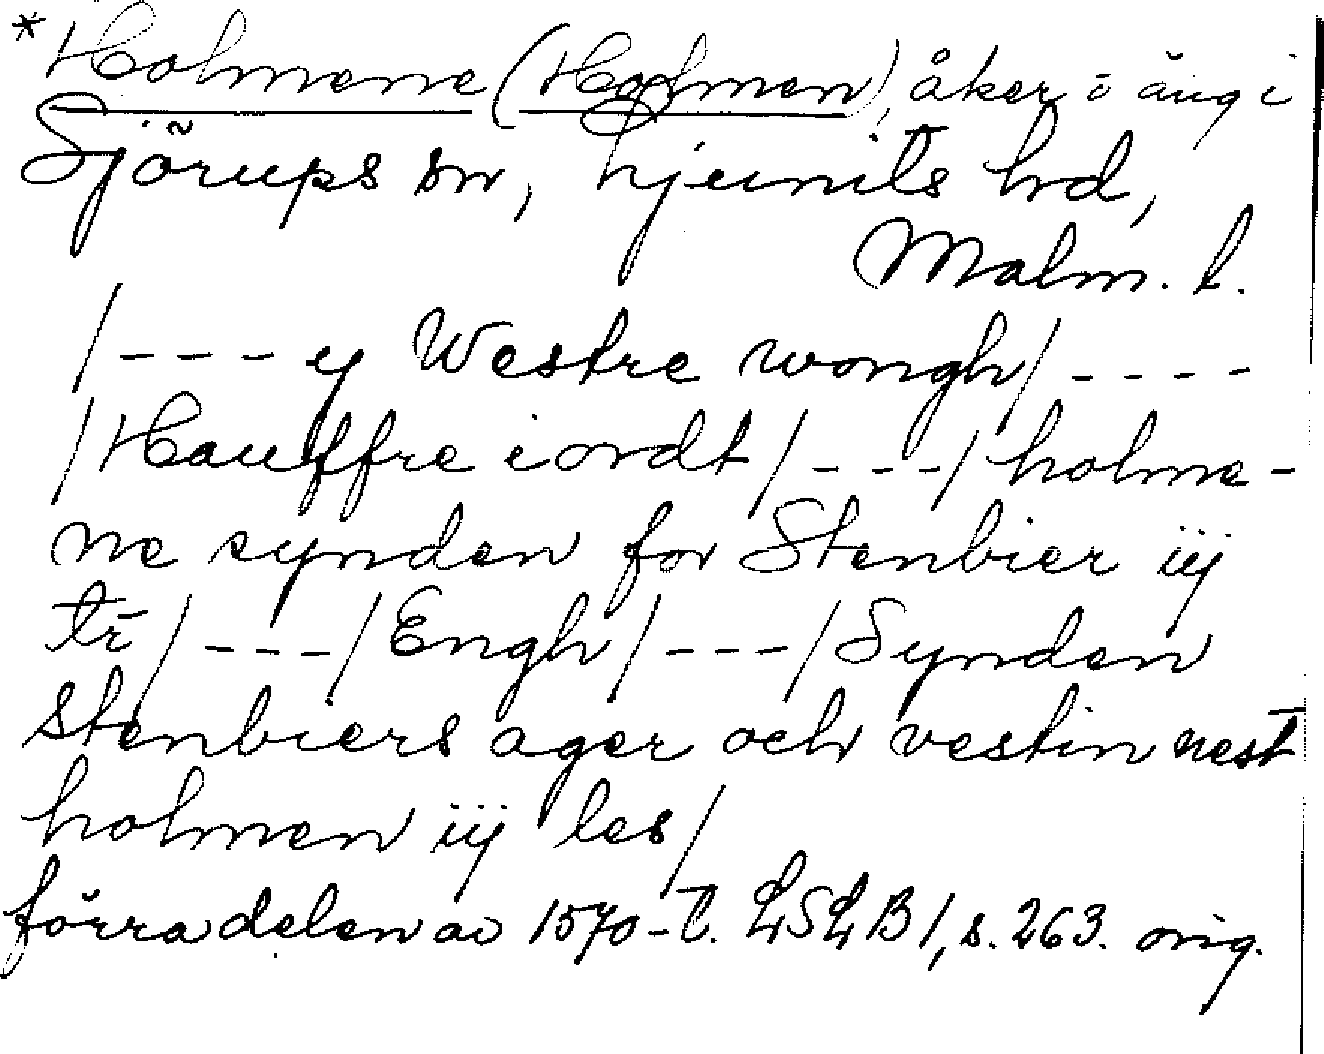 *Holmene (Holmen), åker o äng i
Sjörups sn, Ljunits hd,
Malm. l.
/ - - - y Westre wongh / - - - -
/ Hauffre iordt / - - - / holme-
ne synden for Stenbier iij
tr / - - - / Engh / - - - / Synden
stenbiers ager och vestin nest
holmen iij les /
förra delen av 1570-t. LSLB 1, s. 263. orig.